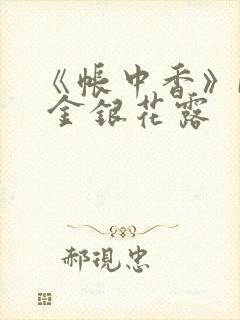 《帐中香》
金银花露
郝现忠